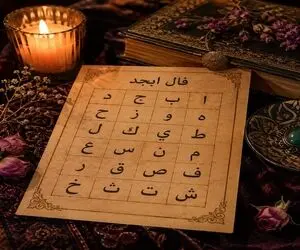 فال ابجد
ا ب ج د
ه و ز ح
ط ي ك ل
م ن س ع
ف ص ق ر
ش ت ث خ